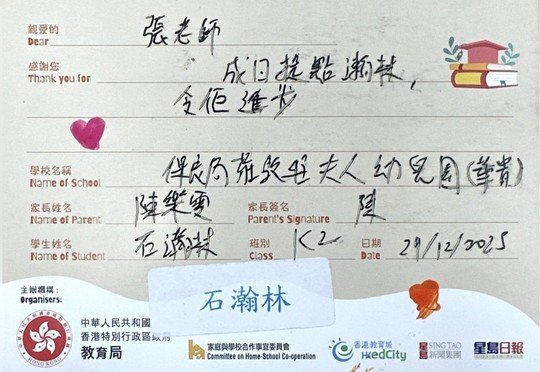 親愛的 張老師
Dear
感謝您 成日提點瀚林,
Thank you for
令佢進步
學校名稱 保良局莊啟程夫人幼兒園(華貴)
Name of School
家長姓名 陳樂雯 家長簽名 陳
Name of Parent Parent's Signature
學生姓名 石瀚林 班別 K2 日期 29/12/2025
Name of Student Class Date
主辦機構:
Organisers:
石瀚林
中華人民共和國
香港特別行政區政府
教育局
HONG KONG
家庭與學校合作事宜委員會
Committee on Home-School Co-operation
香港教育城
HKedCity
星島 SING TAO
新聞集團
星島日報